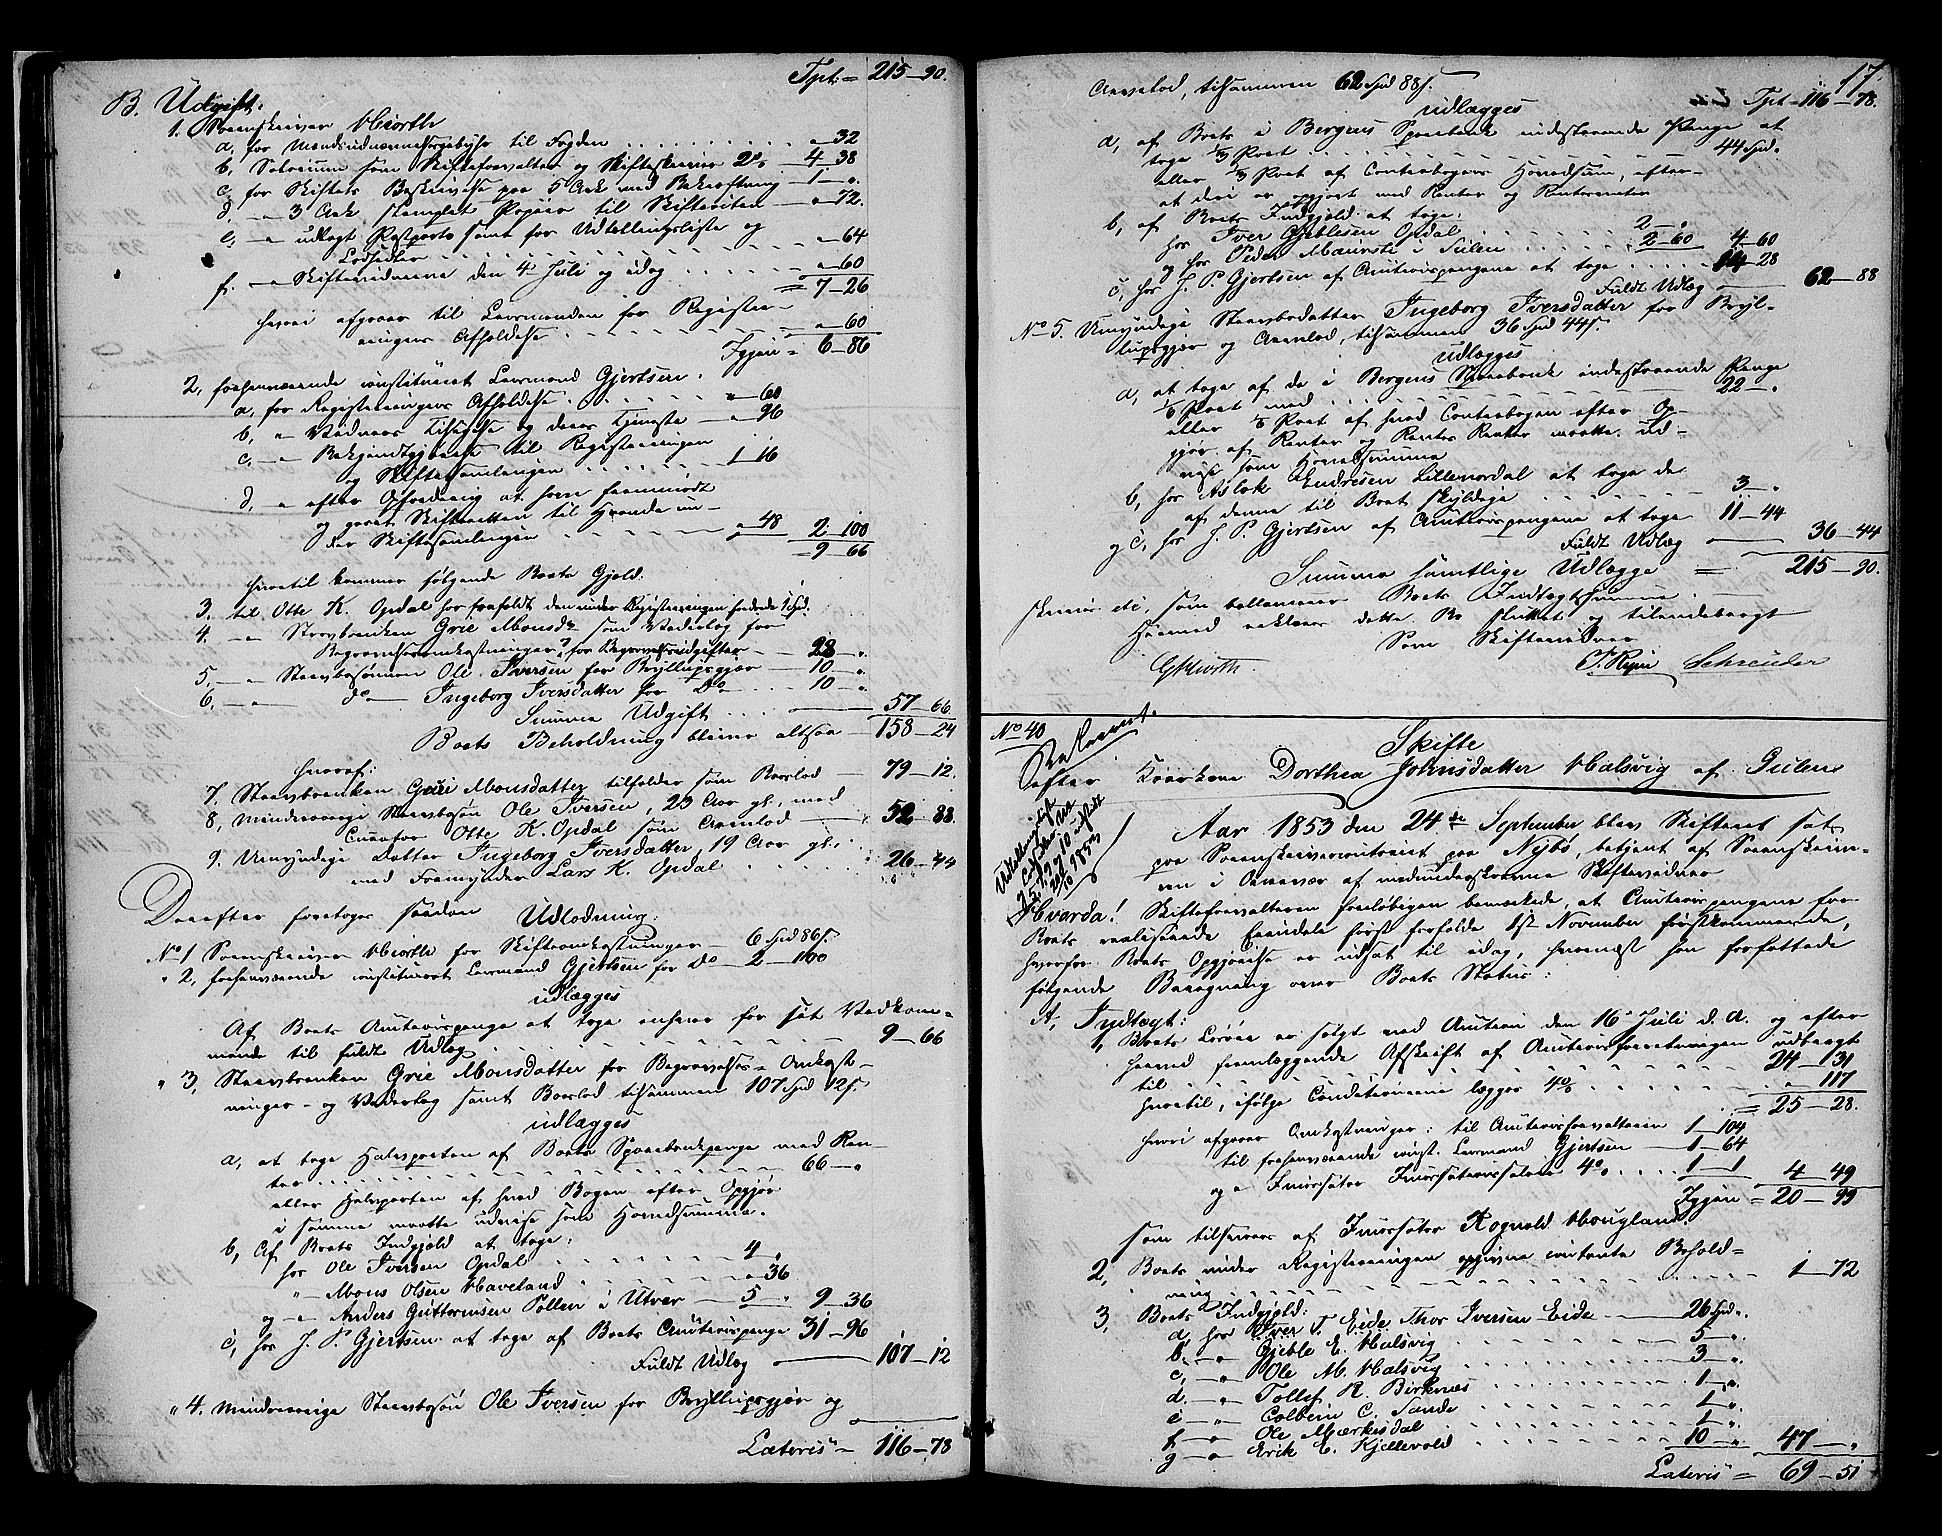 Tpt = 215 – 90.
B. Udgift.
1. Sorenskriver Hiorth
a, for Mandsudnævnelsesgebyhr til Fogden . . . . „ – 32
b, Salarium som Skifteforvalter og Skifteskriver 2% – 4 – 38
c, for Skiftets Beskrivelse paa 5 Ark med Bekræftning – 1 – „
d, – „ 3 Ark stemplet Papiir til Skifteakten – „ – 72.
e, – „ udlagt Postporto samt for Udtællingsliste og
Lodsedler . . . . „ – 64
f. – „ Skiftevidnerne den 4 Juli og idag . . . . „ – 60
= 7 – 26
hvori afgaaer til Lensmanden for Registre-
ringens Afholdelse . . . . „ – 60
Igjen = 6 – 86
2, forhenværende constitueret Lensmand Gjertsen.
a, for Registreringens Afholdelse . . . . „ – 60
b, „ Vidners Tilsigelse og deres Tjeneste – „ – 96
c, – „ Bekjendtgjørelse til Registreringen
og Skiftesamlingen . . . . 1 – 16
d, – „ efter Opfordring at have fremmødt
og gaaet Skifteretten til Haande un-
der Skiftesamlingen . . . . „ – 48 2 – 100
– 9 – 66
hvortil kommer følgende Boets Gjeld.
3. til Otte K. Opdal for forefaldt den under Registreringen
4. – „ Stervboenken Grie Monsdr som Vederlag for
Begravelsesomkostninger, for Begravelsesudgifter – 28 – „
5. – „ Stervbosønnen Ole Iversen for Bryllupsgjør – 10 – „
6. – „ do – Ingeborg Iversdatter for Do . . . 10 – „
57 – 66
Summa Udgift . . . . 158 – 24
Boets Beholdning bliver altsaa
hvoraf:
7. Stervboenken Grie Monsdatter tilfalder som Boeslod – 79 – 12.
8, Mindreaarige Stervbosøn Ole Iversen, 23 Aar gl, med
Curator Otte K. Opdal som Arvelod – 52 – 88.
9. Umyndige Datter Ingeborg Iversdatter, 19 Aar gl,
med Formynder Lars K. Opdal . . . . 26 – 44
Derefter foretoges saadan Udlodning:
No 1 Sorenskriver Hiorth for Skifteomkostninger – 6 Spd 86 s.
„ 2, forhenværende constitueret Lensmand Gjertsen for Do – 2 – 100
udlægges
Af Boets Auctionspenge at tage enhver for sit Vedkom-
mende til fuldt Udlæg . . . . 9 – 66
„ 3, Stervboenken Grie Monsdatter for Begravelses-Omkost-
ninger – og Vederlag samt Boeslod tilsammen 107 Spd 12 s
udlægges
a, at tage Halvparten af Boets Sparebankpenge med Ren-
ter . . . . 66 – „
eller Halvparten af hvad Bogen efter Opgjør
i samme maatte udvise som Hovedsumma.
b, Af Boets Indgjæld at tage,
hos Ole Iversen Opdal . . . . 4 „
„ – Mons Olsen Haveland . . . . „ – 36
og – „ Anders Guttormsen Pollen i Utvær – 5 „ 9 – 36
c, hos J. P. Gjertsen at tage af Boets Auctionspenge 31 – 96
Fuldt Udlæg – 107 – 12
„ 4. Mindreaarige Stervbosøn Ole Iversen for Bryllupsgjør og
Lateris = 116 – 78
17.
Arvelod, tilsammen 62 Spd 88 s.
Tpt = 116 – 78.
udlægges
a, af Boets i Bergens Sparebank indestaaende Penge at
tage 1/3 Part . . . . 44 Spd „
eller 1/3 Part af Contrabogens Hovedsum, efter-
at deri er opgjort med Renter og Rentersrenter
b, af Boets Indgjæld at tage,
hos Iver Gjeblesen Opdal . . . . 2 – „
og hos Peder Maursti i Sulen . . . . 2 – 60 4 – 60
c, hos J. P. Gjertsen af Auctionspengene at tage . . . 14 – 28
Fuldt Udlæg – 62 – 88
No 5. Umyndige Stervbodatter Ingeborg Iversdatter for Bryl-
lupsgjør og Arvelod, tilsammen 36 Spd 44 s.
udlægges
a, at tage af de i Bergens Sparebank indestaaende Penge
1/6 Part med . . . . 22 – „
eller 1/6 Part af hvad Contrabogen efter Op-
gjør af Renter og Renters Renter maatte ud-
vise som Hovedsumma
b, hos Aslak Endresen Lillenordal at tage de
af denne til Boet skyldige . . . . 3 – „
og c, hos J. P. Gjertsen af Auctionspengene at tage 11 – 44
Fuldt Udlæg – 36 – 44
Summa samtlige Udlægge = 215 – 90.
som balancerer Boets Indtægtssumma
Hermed erklæres dette Bo sluttet og tilendebragt
Som Skiftevidner
GHiorth. Schreuder
No 40
Skifte
efter Koerkone Dorthea Johnsdatter Halsvig af Gulen
Udtællingsliste
Aar 1853 den 24de September blev Skifteret sat
paa Sorenskrivercontoiret paa Nybø, betjent af Sorenskrive-
ren i Overvær af medunderskrevne Skiftevidner
Hvorda! Skifteforvalteren foreløbigen bemærkede, at Auctionspengene for
Boets realiserede Eiendele først forfalde 1ste November førstkommende,
hvorfor Boets Opgjørelse er udsat til idag, hvornæst han forfattede
følgende Beregning over Boets Status:
A, Indtægt:
1, Boets Løsøre er solgt ved Auction den 16 Juli d. A. og efter
herved fremlæggende Afskrift af Auctionsforretningen udbragt
til . . . . 24 – 31
hvortil, ifølge Conditionerne lægges 4% . . . . „ – 117
= 25 – 28.
hvori afgaaer Omkostninger: til Auctionsforvalteren 1 – 104
til forhenværende const. Lensmand Gjertsen – 1 – 64
og „ Incassator Incassationssalair 4% . . . . 1 – 1 4 – 49
Igjen = 20 – 99
som tilsvares af Incassator Rognald Hougland.
2, Boets under Registreringen opgivne contante Behold-
ning . . . . 1 – 72
3, Boets Indgjæld:
a, hos Iver T. Eide Thor Iversen Eide – 26 Spd „
b. – „ Gjeble E. Halsvig . . . . 5 – „
c, – „ Ole M. Halsvig . . . . 3 – „
d. – „ Tollef R. Birknæs . . . . 1 – „
e – „ Colbein C. Sande . . . . 1 – „
f – „ Ole Mærkesdal . . . . 1 – „
g – „ Erik E. Kjellevold . . . . 10 – „ 47 – „
Lateris = 69 – 51